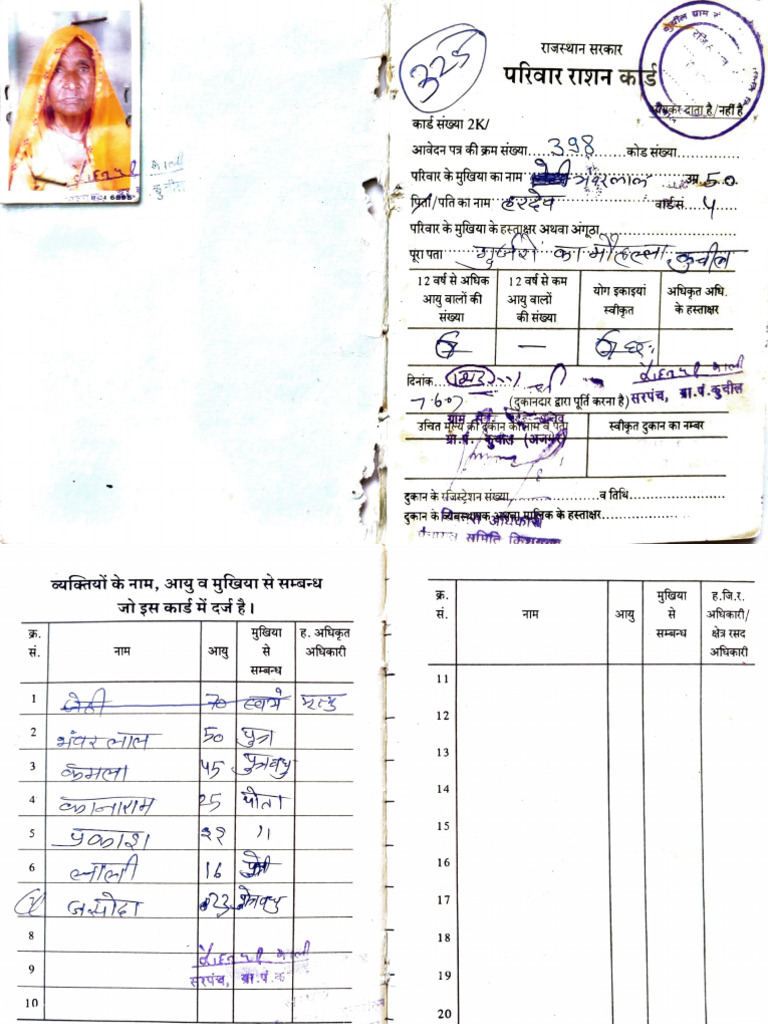 325
राजस्थान सरकार
परिवार राशन कार्ड
आयकर दाता है/नहीं है
कार्ड संख्या 2K/
आवेदन पत्र की क्रम संख्या 398 कोड संख्या
परिवार के मुखिया का नाम भंवरलाल उम्र 50
पिता/पति का नाम हरदेव वार्ड सं. 4
परिवार के मुखिया के हस्ताक्षर अथवा अंगूठा
पूरा पता गुर्जरों का मौहल्ला, कुचील
12 वर्ष से अधिक आयु वालों की संख्या
12 वर्ष से कम आयु वालों की संख्या
योग इकाइयां स्वीकृत
अधिकृत अधि. के हस्ताक्षर
6 — 6 छः
दिनांक
7.6.07 (दुकानदार द्वारा पूर्ति करना है) सरपंच, ग्रा.पं. कुचील
उचित मूल्य की दुकान का नाम व पता
स्वीकृत दुकान का नम्बर
ग्रा.पं. कुचील (अजमेर)
दुकान के रजिस्ट्रेशन संख्या व तिथि
दुकान के व्यवस्थापक अथवा मालिक के हस्ताक्षर
व्यक्तियों के नाम, आयु व मुखिया से सम्बन्ध
जो इस कार्ड में दर्ज है।
क्र. सं.
नाम
आयु
मुखिया से सम्बन्ध
ह. अधिकृत अधिकारी
1 70 स्वयं मृत्यु
2 भंवर लाल 50 पुत्र
3 कमला 45 पुत्रवधु
4 कानाराम 25 पोता
5 प्रकाश 22 ''
6 लाली 16
7 जसोदा 23
8
9
सरपंच, ग्रा.पं.
10
क्र. सं.
नाम
आयु
मुखिया से सम्बन्ध
ह.जि.र. अधिकारी/ क्षेत्र रसद अधिकारी
11
12
13
14
15
16
17
18
19
20